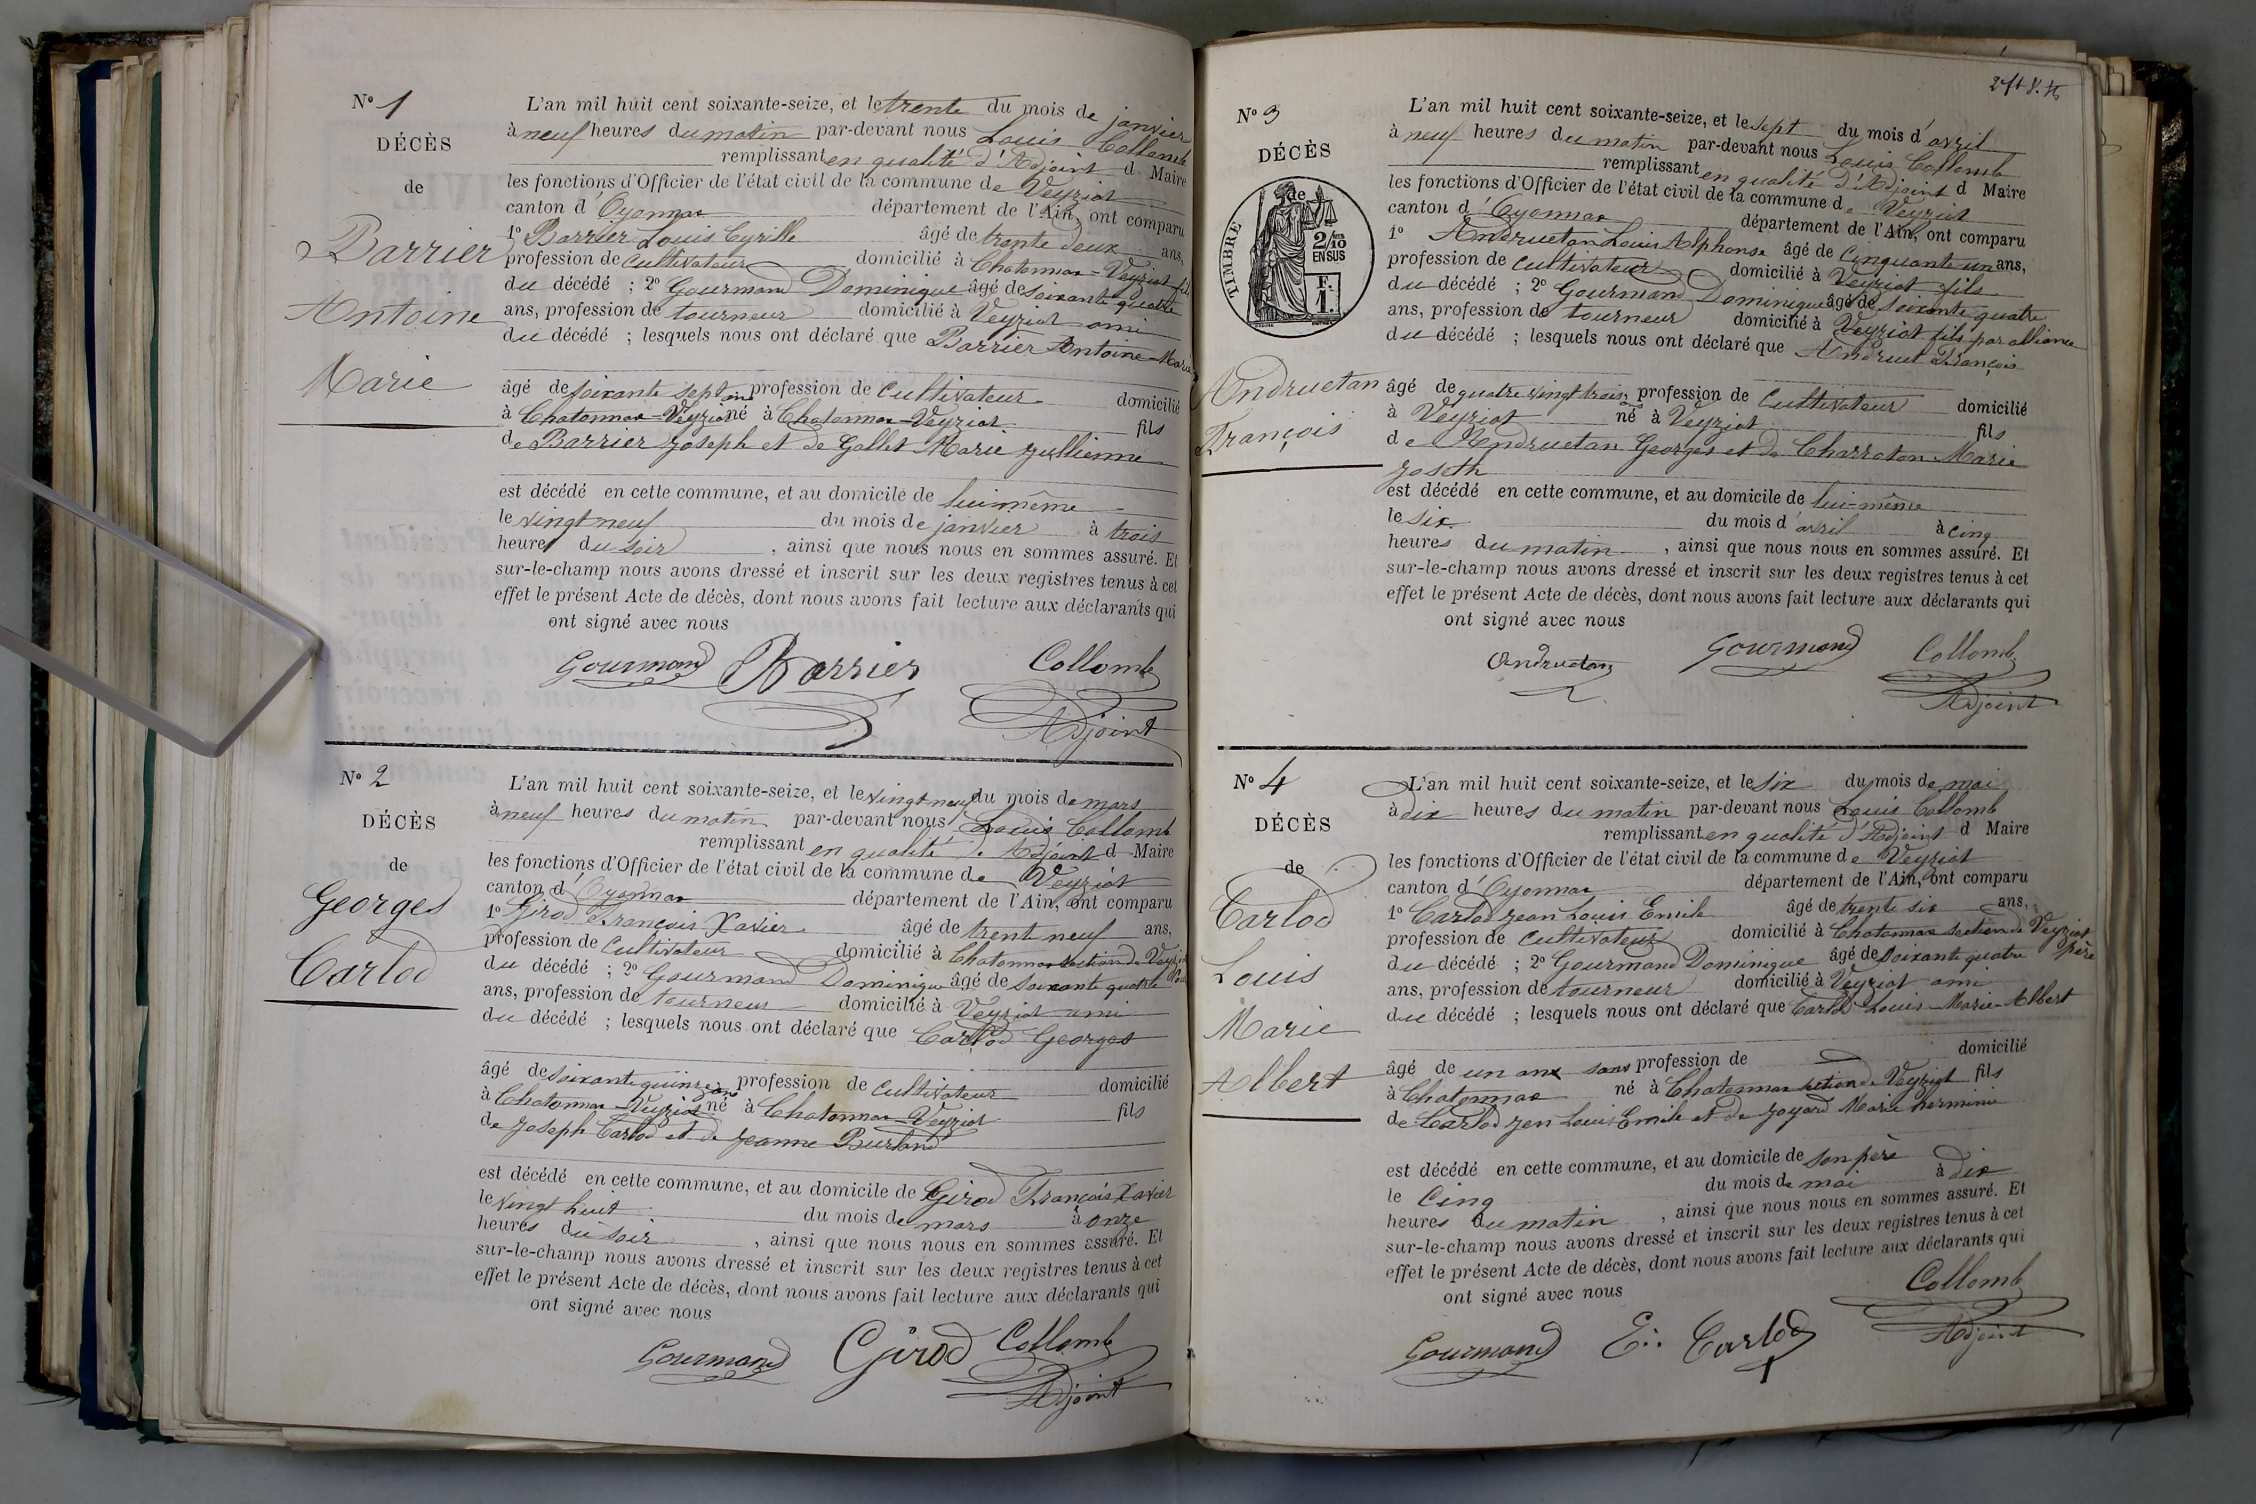 N° 1
DÉCÈS
de
Barrier
Antoine
Marie
L'an mil huit cent soixante-seize, et le trente du mois de janvier
à neuf heures du matin par-devant nous Louis Collomb
remplissant en qualité d'Adjoint d Maire
les fonctions d'Officier de l'état civil de la commune de Veyziat
canton d'Oyonnax département de l'Ain, ont comparu
1° Barrier Louis Cyrille âgé de trente deux ans,
profession de cultivateur domicilié à Chatonnax-Veyziat fils
du décédé ; 2° Gourmand Dominique âgé de soixante quatre
ans, profession de tourneur domicilié à Veyziat ami
du décédé ; lesquels nous ont déclaré que Barrier Antoine-Marie
âgé de soixante sept ans profession de cultivateur domicilié
à Chatonnax-Veyziat né à Chatonnax-Veyziat fils
de Barrier Joseph et de Gallet Marie Jullienne
est décédé en cette commune, et au domicile de lui même
le vingt neuf du mois de janvier à trois
heures du soir, ainsi que nous nous en sommes assuré. Et
sur-le-champ nous avons dressé et inscrit sur les deux registres tenus à cet
effet le présent Acte de décès, dont nous avons fait lecture aux déclarants qui
ont signé avec nous
Gourmand Barrier Collomb
Adjoint
N° 2
DÉCÈS
de
Georges
Carlod
L'an mil huit cent soixante-seize, et le vingt neuf du mois de mars
à neuf heures du matin par-devant nous Louis Collomb
remplissant en qualité d'Adjoint d Maire
les fonctions d'Officier de l'état civil de la commune de Veyziat
canton d'Oyonnax département de l'Ain, ont comparu
1° Girod François Xavier âgé de trente neuf ans,
profession de cultivateur domicilié à Chatonnax section de Veyziat
du décédé ; 2° Gourmand Dominique âgé de soixante quatre
ans, profession de tourneur domicilié à Veyziat ami
du décédé ; lesquels nous ont déclaré que Carlod Georges
âgé de soixante quinze ans profession de cultivateur domicilié
à Chatonnax-Veyziat né à Chatonnax-Veyziat fils
de Joseph Carlod et de Jeanne Burland
est décédé en cette commune, et au domicile de Girod François Xavier
le vingt huit du mois de mars à onze
heures du soir, ainsi que nous nous en sommes assuré. Et
sur-le-champ nous avons dressé et inscrit sur les deux registres tenus à cet
effet le présent Acte de décès, dont nous avons fait lecture aux déclarants qui
ont signé avec nous
Gourmand Girod Collomb
Adjoint
N° 3
DÉCÈS
de
TIMBRE
2/10
EN SUS
F.
1.
Andruetan
François
L'an mil huit cent soixante-seize, et le sept du mois d'avril
à neuf heures du matin par-devant nous Louis Collomb
remplissant en qualité d'Adjoint d Maire
les fonctions d'Officier de l'état civil de la commune de Veyziat
canton d'Oyonnax département de l'Ain, ont comparu
1° Andruetan Louis Alphonse âgé de cinquante un ans,
profession de cultivateur domicilié à Veyziat fils
du décédé ; 2° Gourmand Dominique âgé de soixante quatre
ans, profession de tourneur domicilié à Veyziat fils par alliance
du décédé ; lesquels nous ont déclaré que Andruet François
âgé de quatre vingt trois ans profession de cultivateur domicilié
à Veyziat né à Veyziat fils
de Andruetan Georges et de Charreton Marie
Joseth
est décédé en cette commune, et au domicile de lui-même
le six du mois d'avril à cinq
heures du matin, ainsi que nous nous en sommes assuré. Et
sur-le-champ nous avons dressé et inscrit sur les deux registres tenus à cet
effet le présent Acte de décès, dont nous avons fait lecture aux déclarants qui
ont signé avec nous
Andruetan Gourmand Collomb
Adjoint
N° 4
DÉCÈS
de
Carlod
Louis
Marie
Albert
L'an mil huit cent soixante-seize, et le six du mois de mai
à dix heures du matin par-devant nous Louis Collomb
remplissant en qualité d'Adjoint d Maire
les fonctions d'Officier de l'état civil de la commune de Veyziat
canton d'Oyonnax département de l'Ain, ont comparu
1° Carlod Jean Louis Emile âgé de trente six ans,
profession de cultivateur domicilié à Chatonnax section de Veyziat père
du décédé ; 2° Gourmand Dominique âgé de soixante quatre
ans, profession de tourneur domicilié à Veyziat ami
du décédé ; lesquels nous ont déclaré que Carlod Louis-Marie-Albert
âgé de un ans sans profession de domicilié
à Chatonnax né à Chatonnax section de Veyziat fils
de Carlod Jen Louis Emile et de Joyard Marie herminie
est décédé en cette commune, et au domicile de son père
le cinq du mois de mai à dix
heures du matin, ainsi que nous nous en sommes assuré. Et
sur-le-champ nous avons dressé et inscrit sur les deux registres tenus à cet
effet le présent Acte de décès, dont nous avons fait lecture aux déclarants qui
ont signé avec nous
Gourmand E. Carlod Collomb
Adjoint